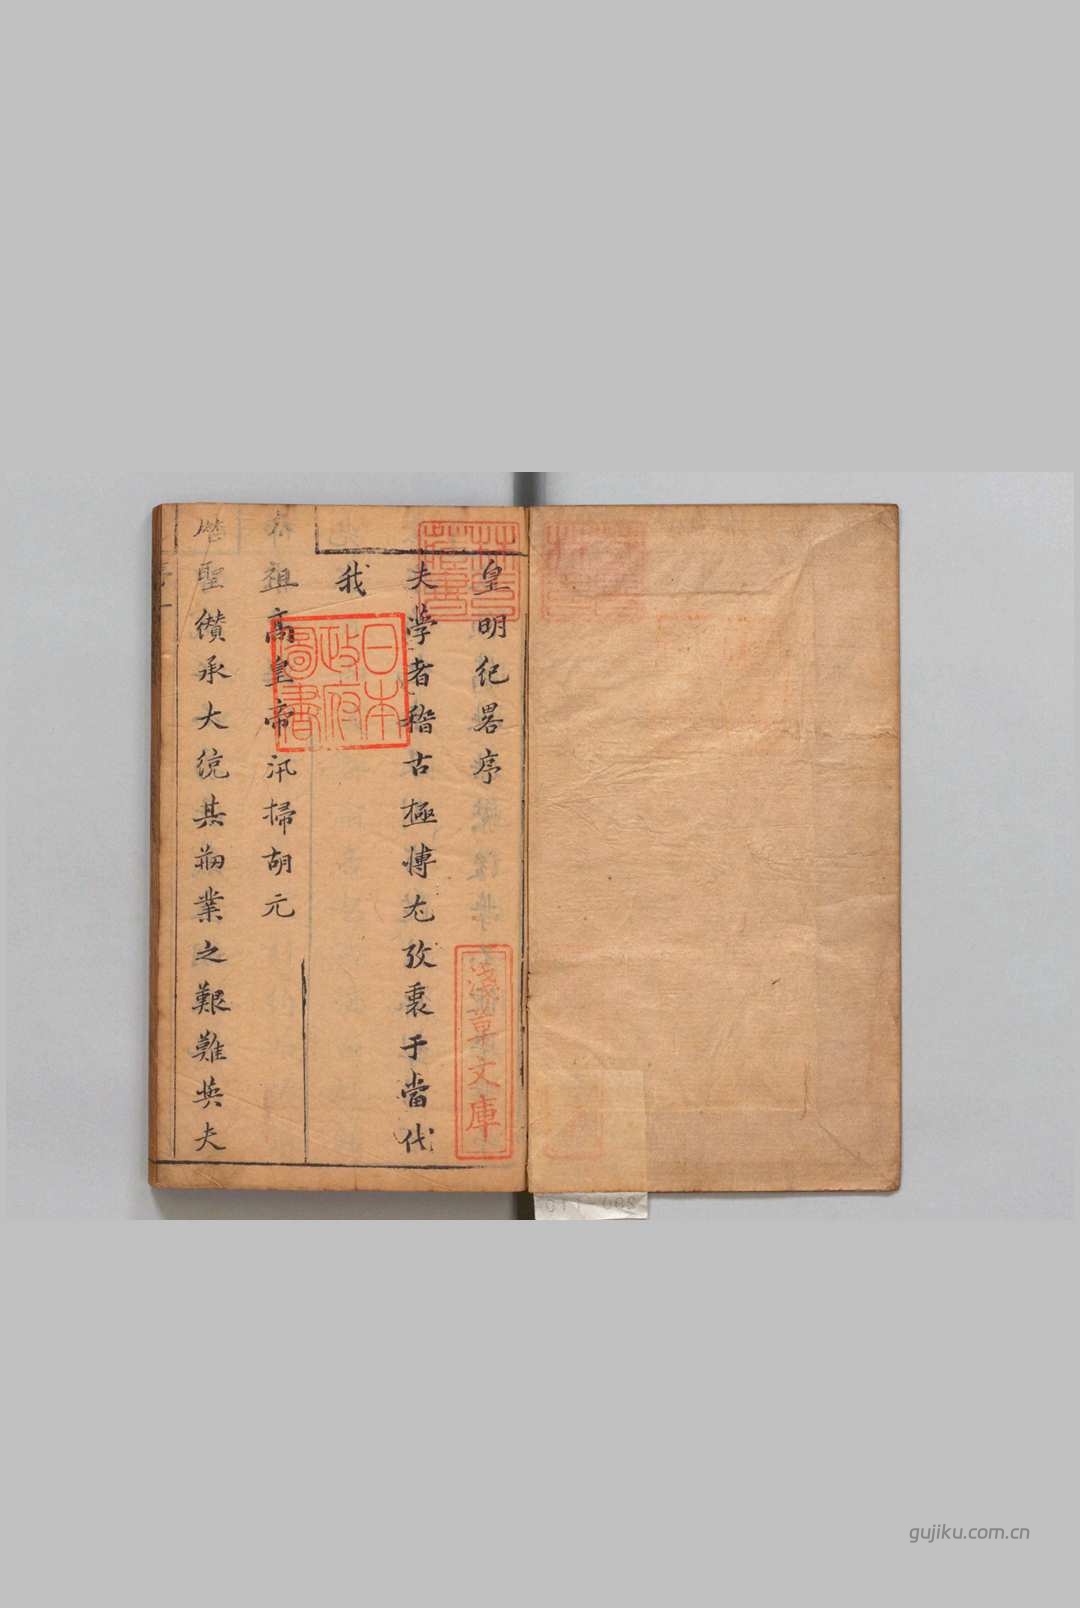 皇明紀畧序
夫學者稽古極博尤攷衷于當代
我
祖高皇帝汛掃胡元
聖纘承大統其刱業之艱難與夫
林氏藏書
日本政府圖書
淺草文庫
gujiku.com.cn